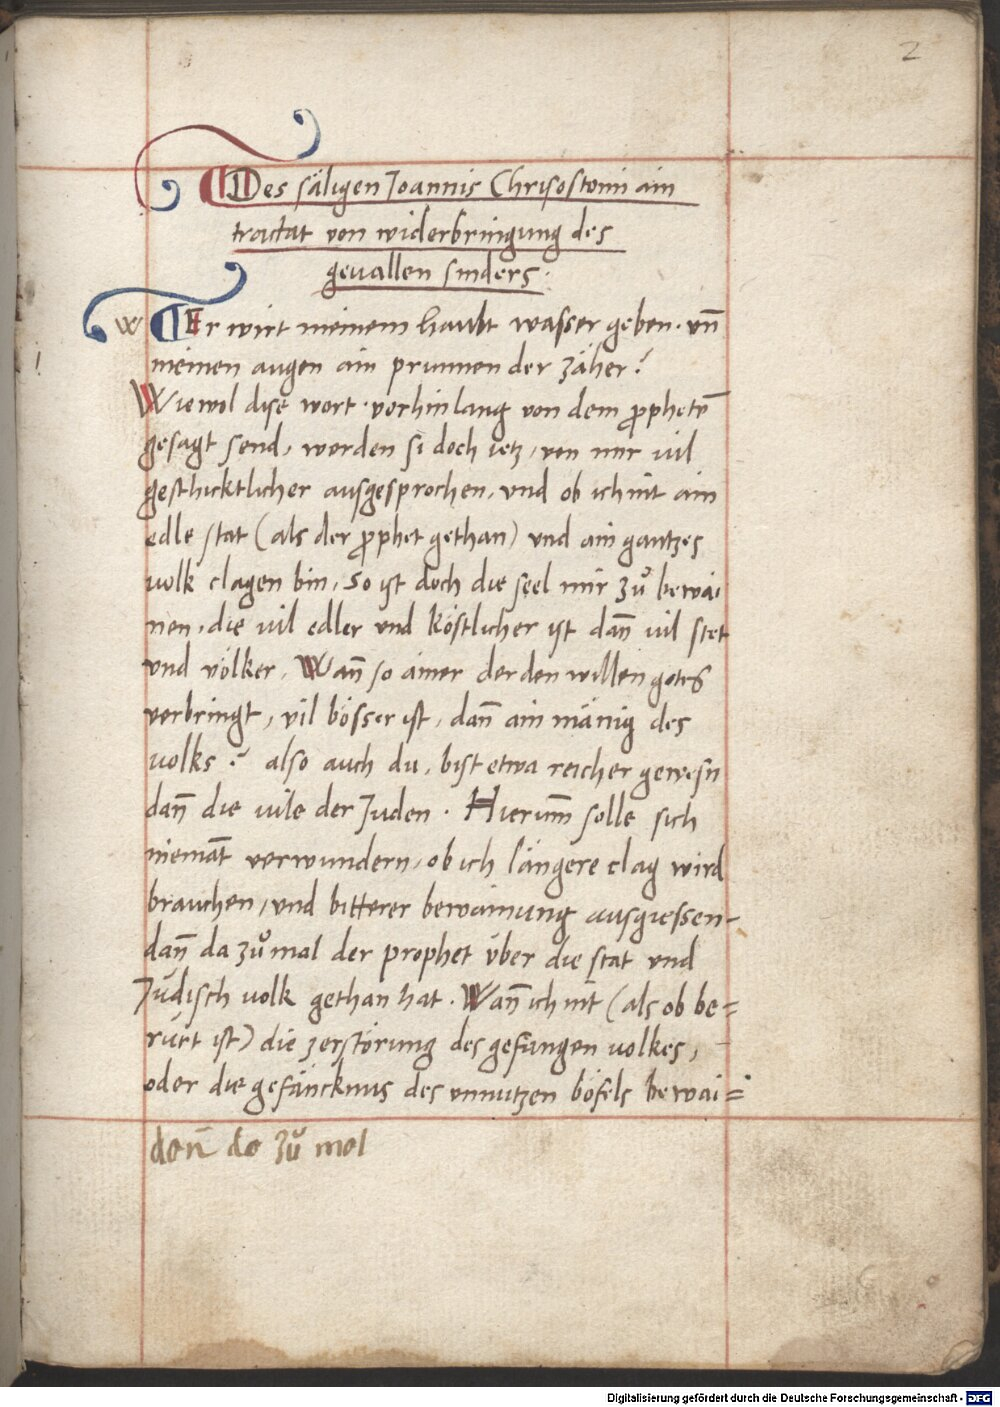 2
Des säligen Joannis Chrisostomi ain
tractat von widerbringung des
gevallen sinders.
w Er wirt meinem haubt wasser geben. vn̄
meinen augen ain prunnen der zäher?
Wiewol dise wort vorhin lang von dem ꝓphetn̄
gesagt send, werden si doch ietz, von mir vil
geschicktlicher ausgesprochen, vnd ob ich nit ain
edle stat (als der ꝓphet gethan) vnd ain gantzes
volk clagen bin, so ist doch die seel mir zuͦ bewai-
nen, die vil edler vnd köstlicher ist dan̄ vil stet
vnd völker. Wan̄ so ainer der den willen gotes
verbringt, vil bösser ist, dan̄ ain mänig des
volks? also auch du, bist etwa reicher gewesn
dan̄ die vile der Juden. Hierum̄ solle sich
niemāt verwundern, ob ich längere clag wird
brauchen, vnd bitterer bewainung ausgiessen-
dan̄ da zuͦ mal der prophet über die stat vnd
Jüdisch volk gethan hat. Wan̄ ich nit (als ob be=
rürt ist) die zerstörung des gefangen volkes,
oder die gefäncknus des vnnutzen böfels bewai=
den̄ do zuͦ mol
Digitalisierung gefördert durch die Deutsche Forschungsgemeinschaft - DFG